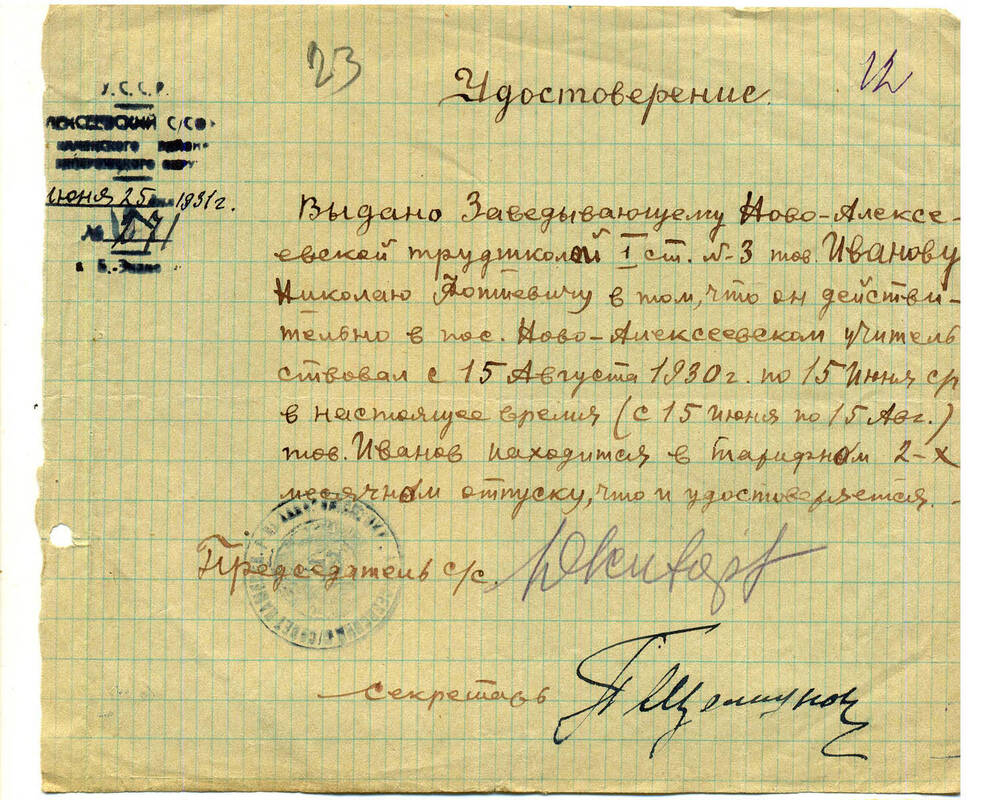 23
12
Удостоверение.
У.С.С.Р.
ЛЕКСЕЕВСКИЙ С/СО
июня 25 1931 г.
№ 271
Выдано Заведывающему Ново-Алексе-
евской трудшколой I ст. №3 тов. Иванову
Николаю в том, что он действи-
тельно в пос. Ново-Алексеевском учитель
ствовал с 15 Августа 1930 г. по 15 Июня с/г
в настоящее время (с 15 июня по 15 Авг.)
тов. Иванов находится в тарифном 2-х
месячном отпуску, что и удостоверяется.
Председатель с/с.
Секретарь